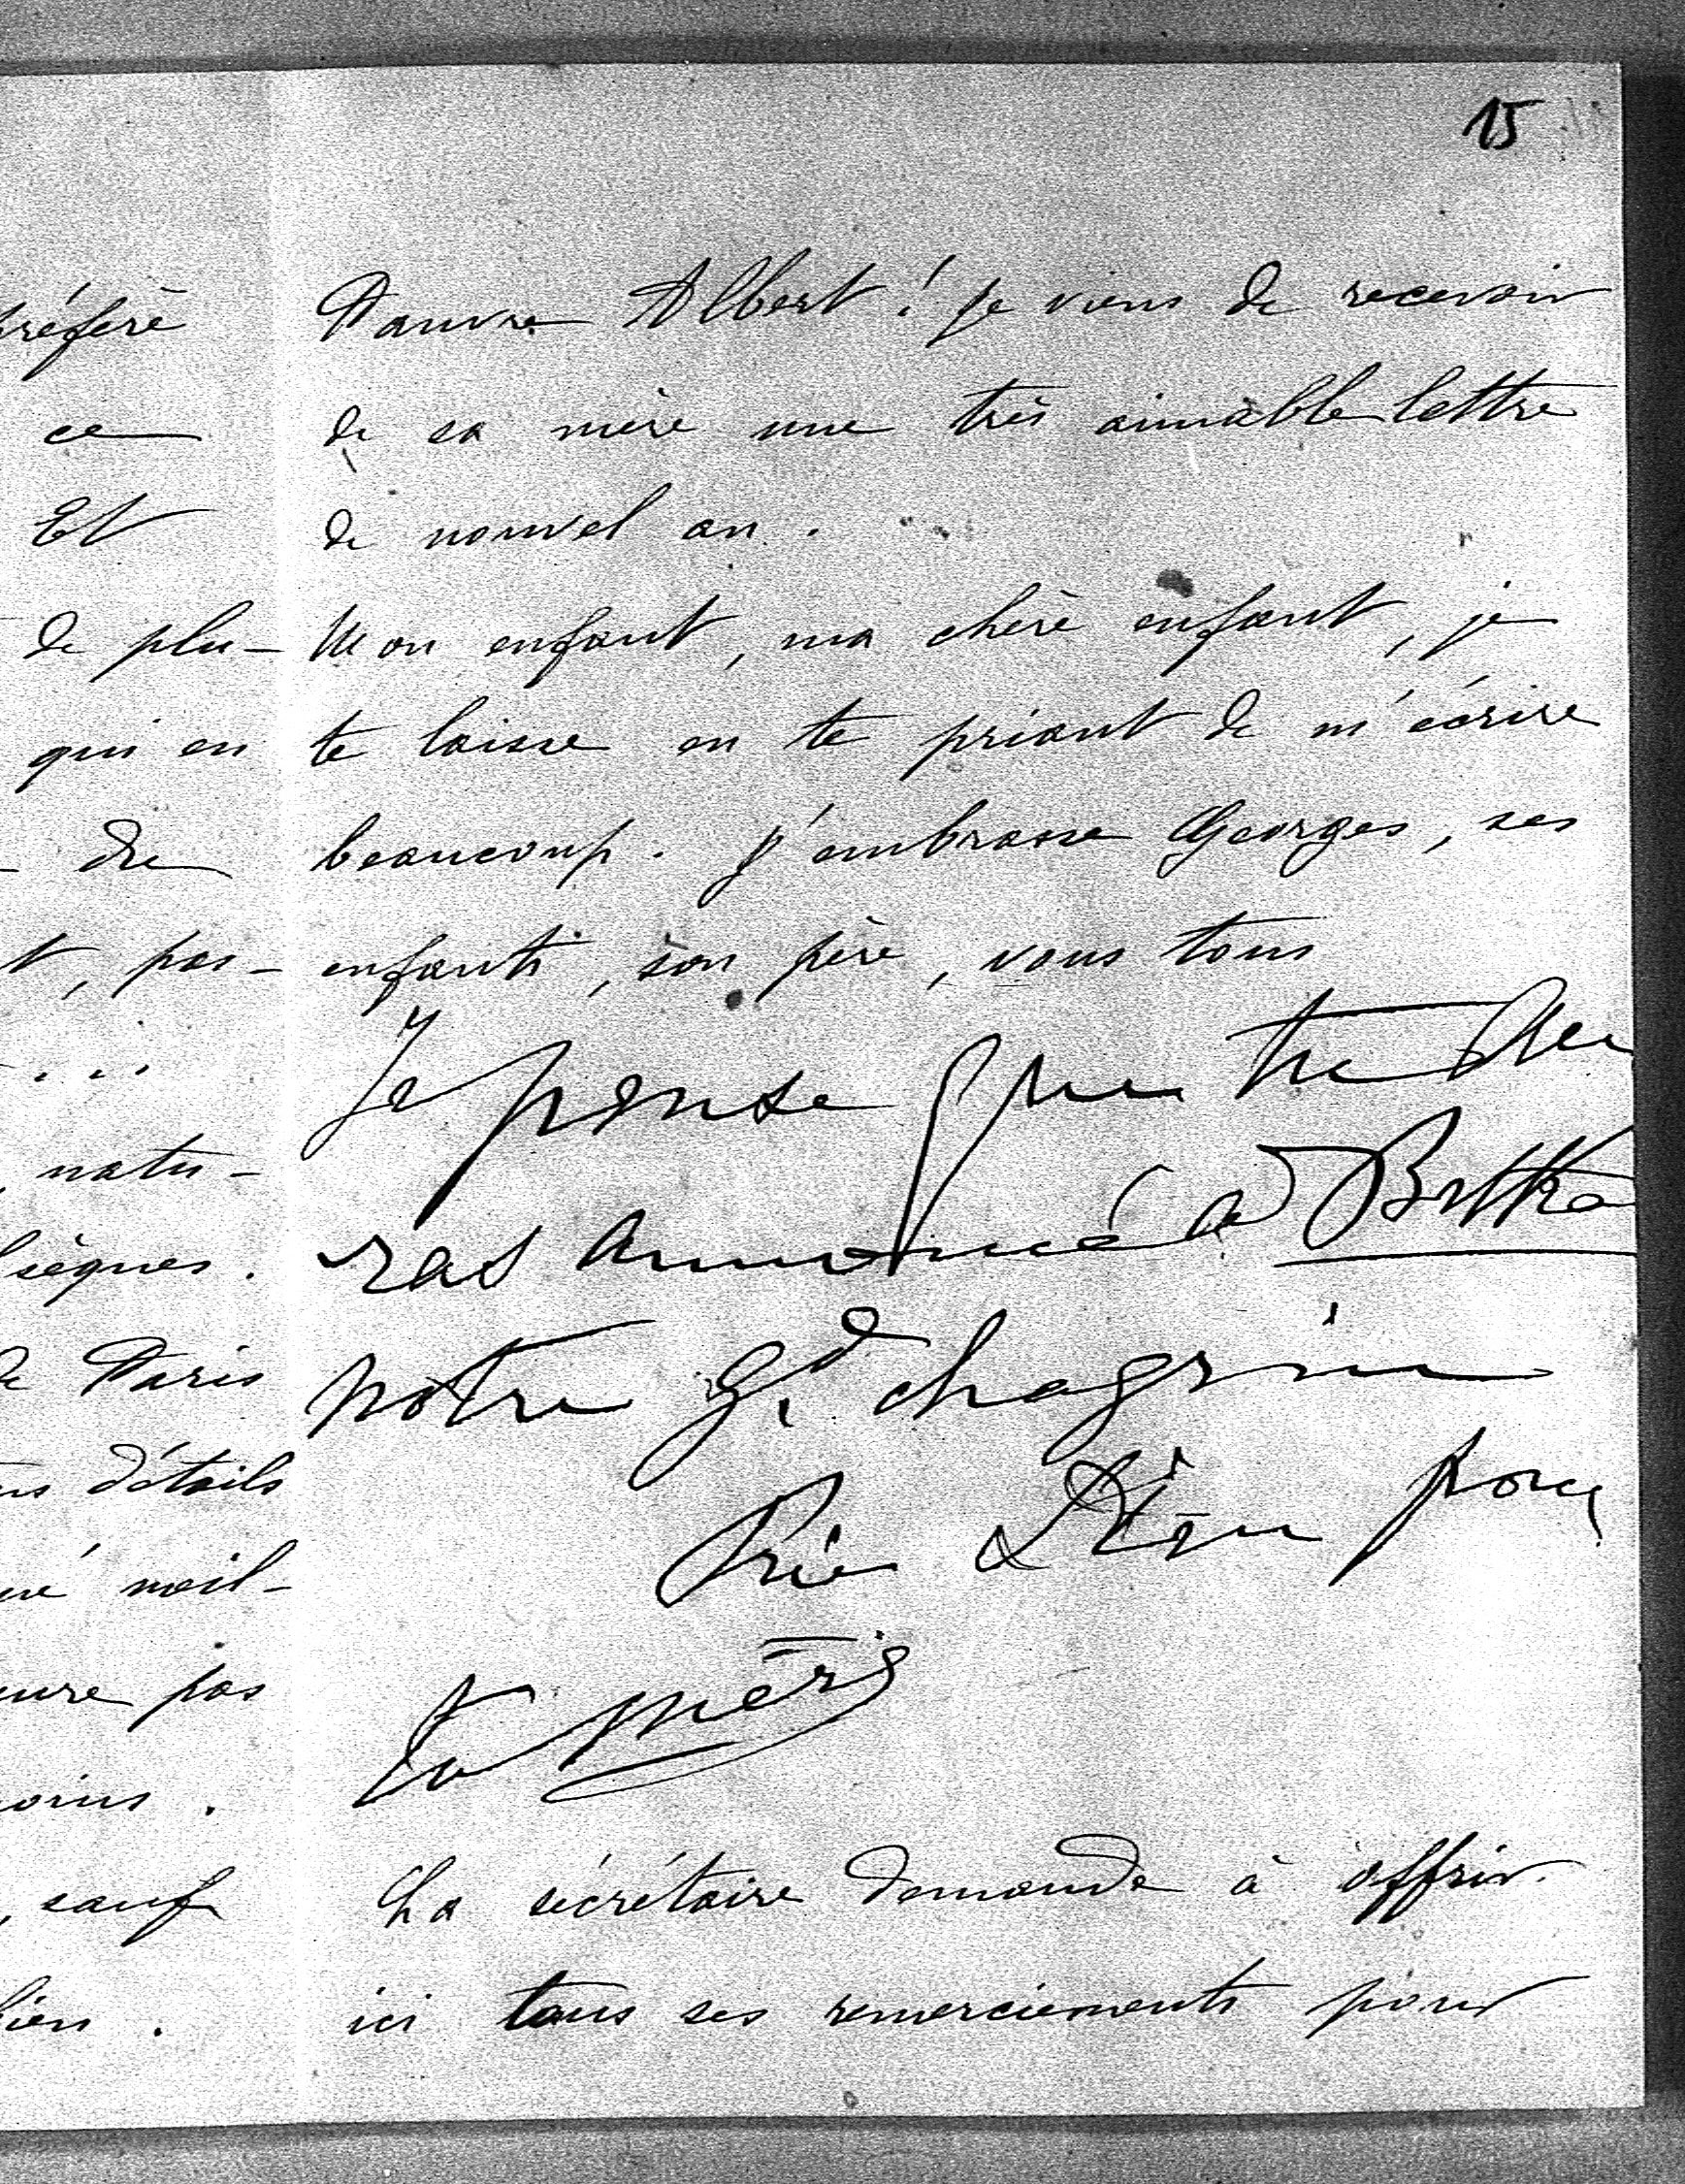 15
préfère
ce
Et
de plu-
qui en
dre
t, pas-
...
, natu-
sèques.
de Paris
ns détails
né meil-
eure pas
moins.
, sauf
bien.
Pauvre Albert ! je viens de recevoir
de sa mère une très aimable lettre
de nouvel an.
Mon enfant, ma chère enfant, je
te laisse en te priant de m'écrire
beaucoup. J'embrasse Georges, ses
enfants, son père, vous tous
Je pense que tu au
ras annoncé à Berthe
notre gd chagrin
Prie Dieu pour
ta mère
La secrétaire demande à offrir
ici tous ses remerciements pour